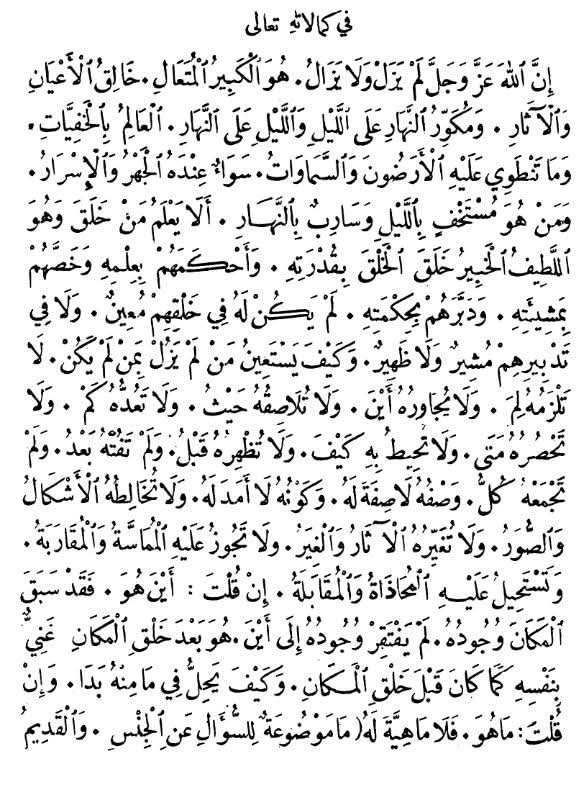 في كمالاته تعالى
إِنَّ ٱللَّهَ عَزَّ وَجَلَّ لَمْ يَزَلْ وَلَا يَزَالُ. هُوَ ٱلْكَبِيرُ ٱلْمُتَعَالِ. خَالِقُ ٱلْأَعْيَانِ
وَٱلْآثَارِ. وَمُكَوِّرُ ٱلنَّهَارِ عَلَى ٱللَّيْلِ وَٱللَّيْلِ عَلَى ٱلنَّهَارِ. ٱلْعَالِمُ بِٱلْخَفِيَّاتِ.
وَمَا تَنْطَوِي عَلَيْهِ ٱلْأَرَضُونَ وَٱلسَّمَاوَاتُ. سَوَاءٌ عِنْدَهُ ٱلْجَهْرُ وَٱلْإِسْرَارُ.
وَمَنْ هُوَ مُسْتَخْفٍ بِٱللَّيْلِ وَسَارِبٌ بِٱلنَّهَارِ. أَلَا يَعْلَمُ مَنْ خَلَقَ وَهُوَ
ٱللَّطِيفُ ٱلْخَبِيرُ خَلَقَ ٱلْخَلْقَ بِقُدْرَتِهِ. وَأَحْكَمَهُمْ بِعِلْمِهِ وَخَصَّهُمْ
بِمَشِيئَتِهِ. وَدَبَّرَهُمْ بِحِكْمَتِهِ. لَمْ يَكُنْ لَهُ فِي خَلْقِهِمْ مُعِينٌ. وَلَا فِي
تَدْبِيرِهِمْ مُشِيرٌ وَلَا ظَهِيرٌ. وَكَيْفَ يَسْتَعِينُ مَنْ لَمْ يَزَلْ بِمَنْ لَمْ يَكُنْ. لَا
تَلْزَمُهُ لِمَ. وَلَا يُجَاوِرُهُ أَيْنَ. وَلَا تُلَاصِقُهُ حَيْثُ. وَلَا تَعُدُّهُ كَمْ. وَلَا
تَحْصُرُهُ مَتَى. وَلَا تُحِيطُ بِهِ كَيْفَ. وَلَا تُظْهِرُهُ قَبْلُ. وَلَمْ تَفُتْهُ بَعْدُ. وَلَمْ
تَجْمَعْهُ كُلٌّ. وَصْفُهُ لَا صِفَةَ لَهُ. وَكَوْنُهُ لَا أَمَدَ لَهُ. وَلَا تُخَالِطُهُ ٱلْأَشْكَالُ
وَٱلصُّوَرُ. وَلَا تُغَيِّرُهُ ٱلْآثَارُ وَٱلْغِيَرُ. وَلَا تَجُوزُ عَلَيْهِ ٱلْمُمَاسَّةُ وَٱلْمُقَارَبَةُ.
وَتَسْتَحِيلُ عَلَيْهِ ٱلْمُحَاذَاةُ وَٱلْمُقَابَلَةُ. إِنْ قُلْتَ: أَيْنَ هُوَ. فَقَدْ سَبَقَ
ٱلْمَكَانَ وُجُودُهُ. لَمْ يَفْتَقِرْ وُجُودُهُ إِلَى أَيْنَ. هُوَ بَعْدَ خَلْقِ ٱلْمَكَانِ غَنِيٌّ
بِنَفْسِهِ كَمَا كَانَ قَبْلَ خَلْقِ ٱلْمَكَانِ. وَكَيْفَ يَحِلُّ فِي مَا مِنْهُ بَدَا. وَإِنْ
قُلْتَ: مَا هُوَ. فَلَا مَاهِيَّةَ لَهُ (مَا مَوْضُوعَةٌ لِلسُّؤَالِ عَنِ ٱلْجِنْسِ. وَٱلْقَدِيمُ